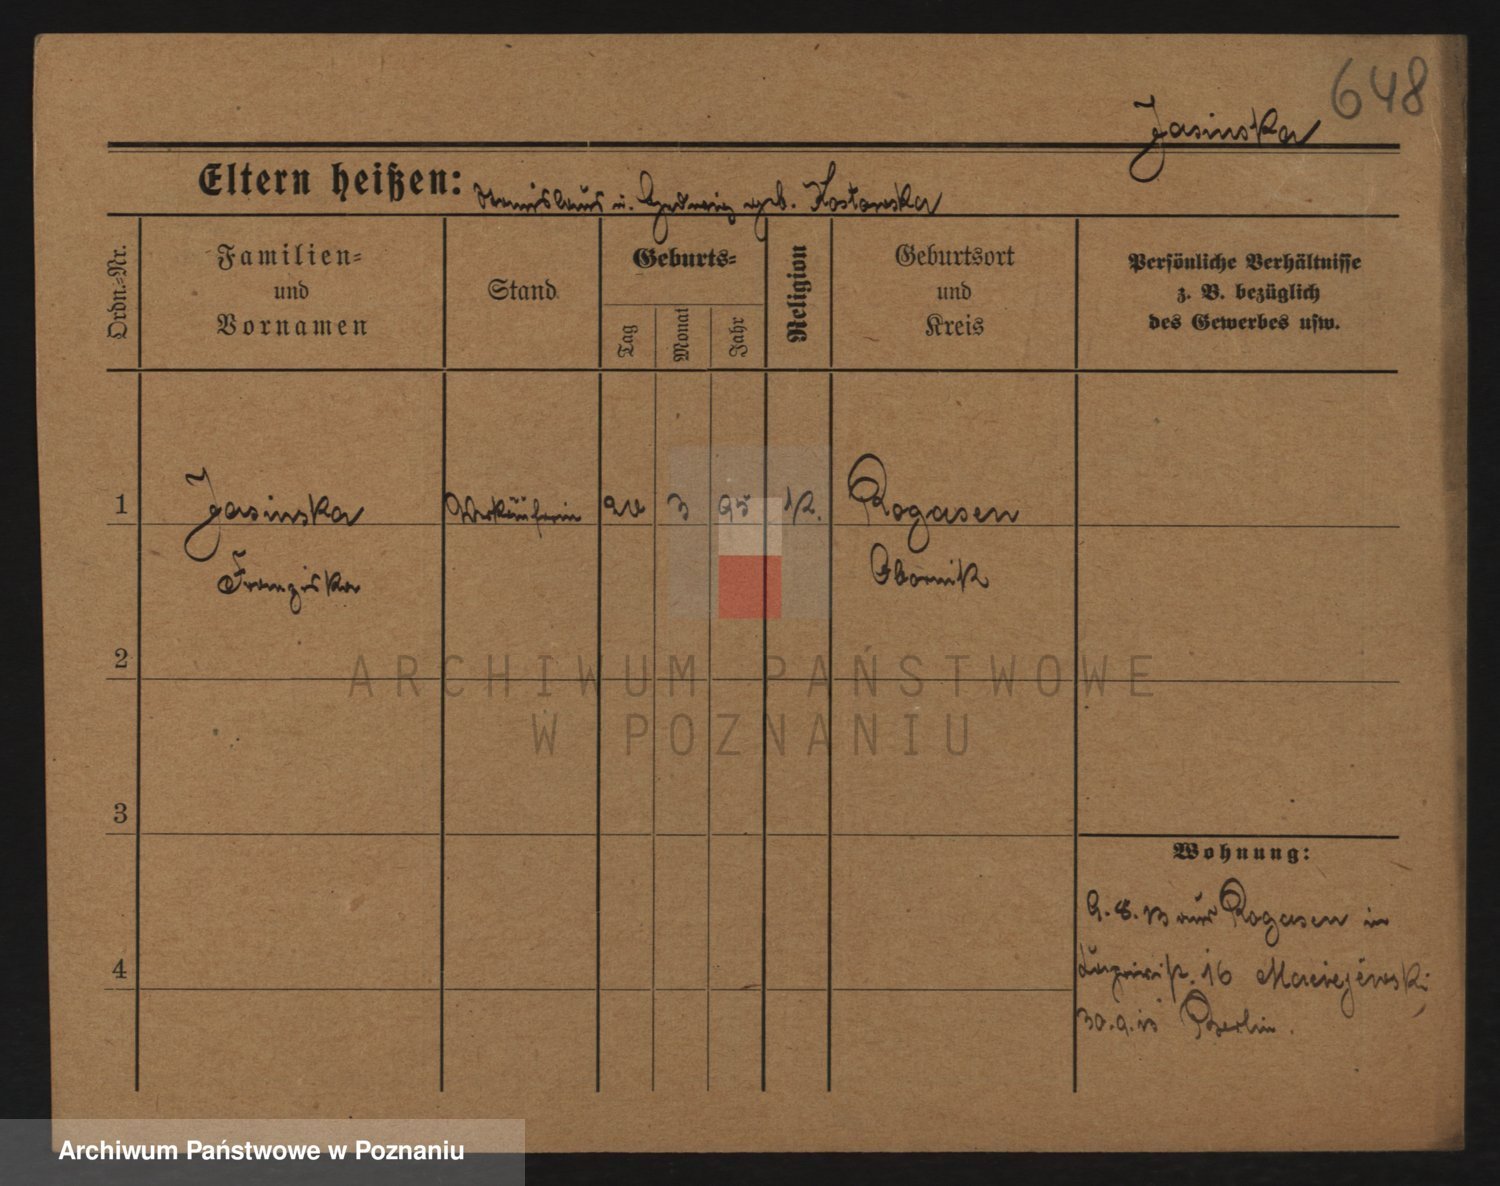 648
Jasinska
Eltern heißen: Stanislaus u. Hedwig geb. Kostanska
Ordn.=Nr.
Familien=
und
Vornamen
Stand
Geburts=
Tag
Monat
Jahr
Religion
Geburtsort
und
Kreis
Persönliche Verhältnisse
z. B. bezüglich
des Gewerbes usw.
1
Jasinska Verkäuferin 3 95 k. Rogasen
Franziska Obornik
2
ARCHIWUM PAŃSTWOWE
W POZNANIU
3
Wohnung:
9.8.13 aus Rogasen in
16 Maciejewski
4
30.9.13 Berlin.
Archiwum Państwowe w Poznaniu